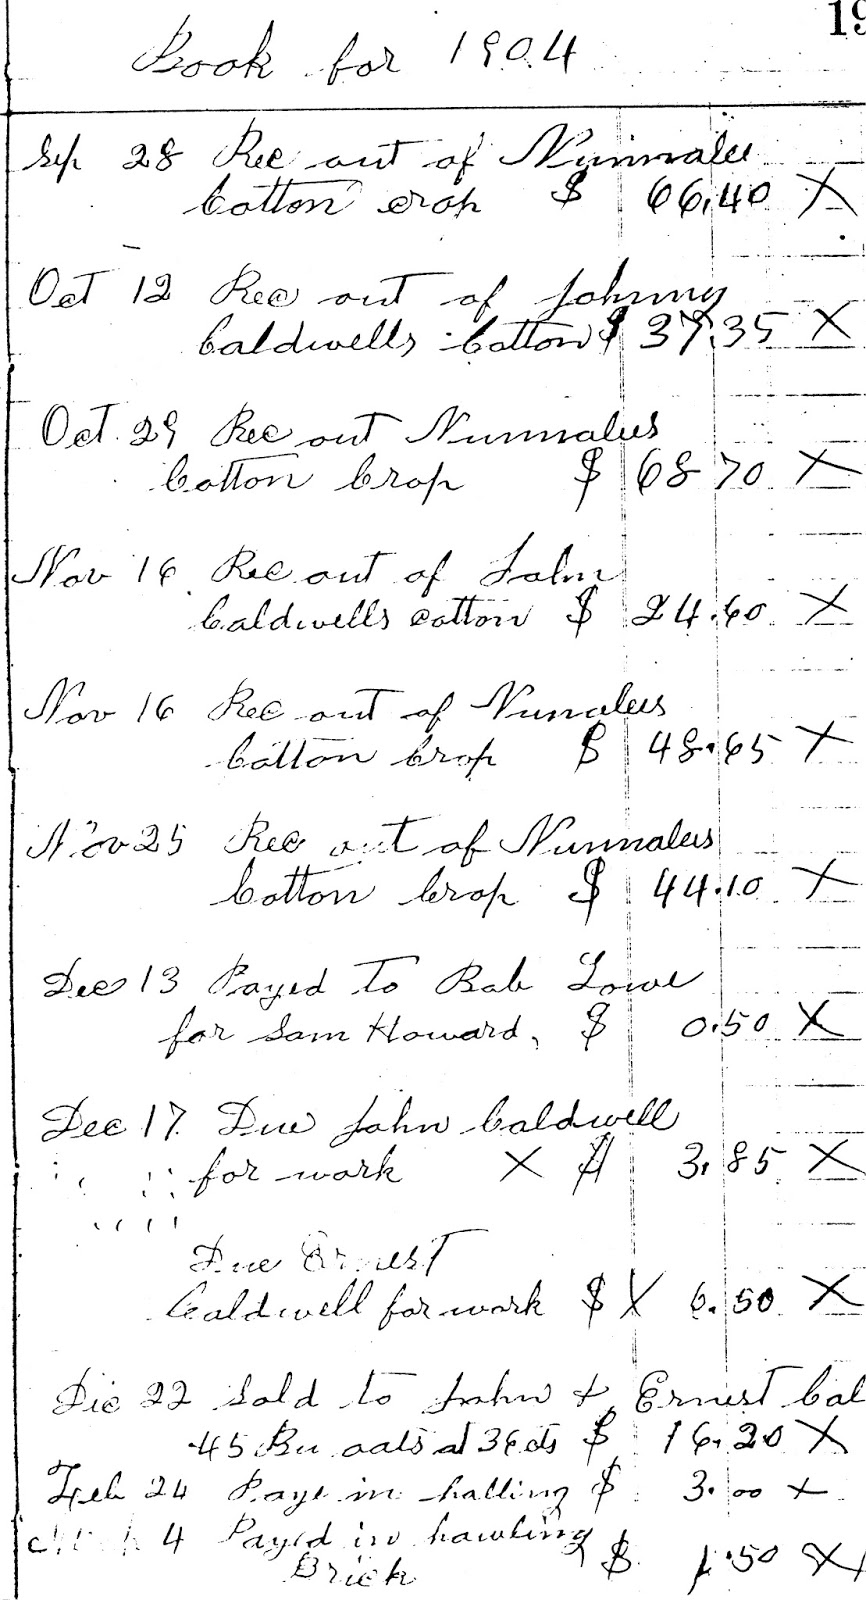 19
Book for 1904
Sep 28 Rec out of Nunnalee
Cotton crop $ 66.40 X
Oct 12 Rec out of Johnny
Caldwells Cotton $ 37.35 X
Oct. 29 Rec out Nunnalees
Cotton Crop $ 68 70 X
Nov 16 Rec out of John
Caldwells cotton $ 24.60 X
Nov 16 Rec out of Nunalees
Cotton Crop $ 48.65 X
Nov 25 Rec out of Nunnalees
Cotton Crop $ 44.10 X
Dec 13 Payed to Bob Lowe
for Sam Howard, $ 0.50 X
Dec 17 Due John Caldwell
for work X $ 3.85 X
Due Ernest
Caldwell for work $ X 6.50 X
Dec 22 Sold to John + Ernest Cal
45 Bu oats at 36 cts $ 16.20 X
Feb 24 Paye in halling $ 3.00 +
4 Payed in hawling
Brick $ 1.50 X